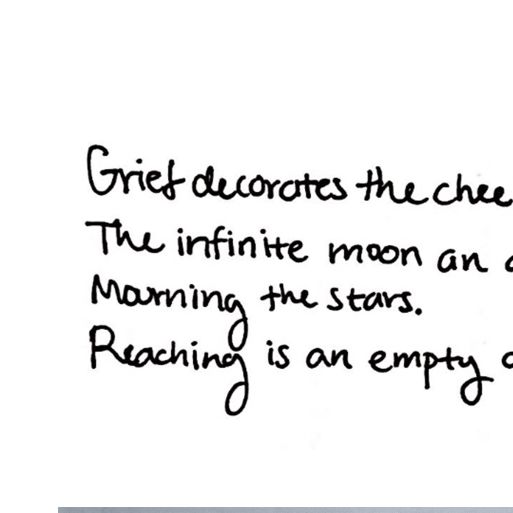 Grief decorates the chee
The infinite moon an
Mourning the stars.
Reaching is an empty